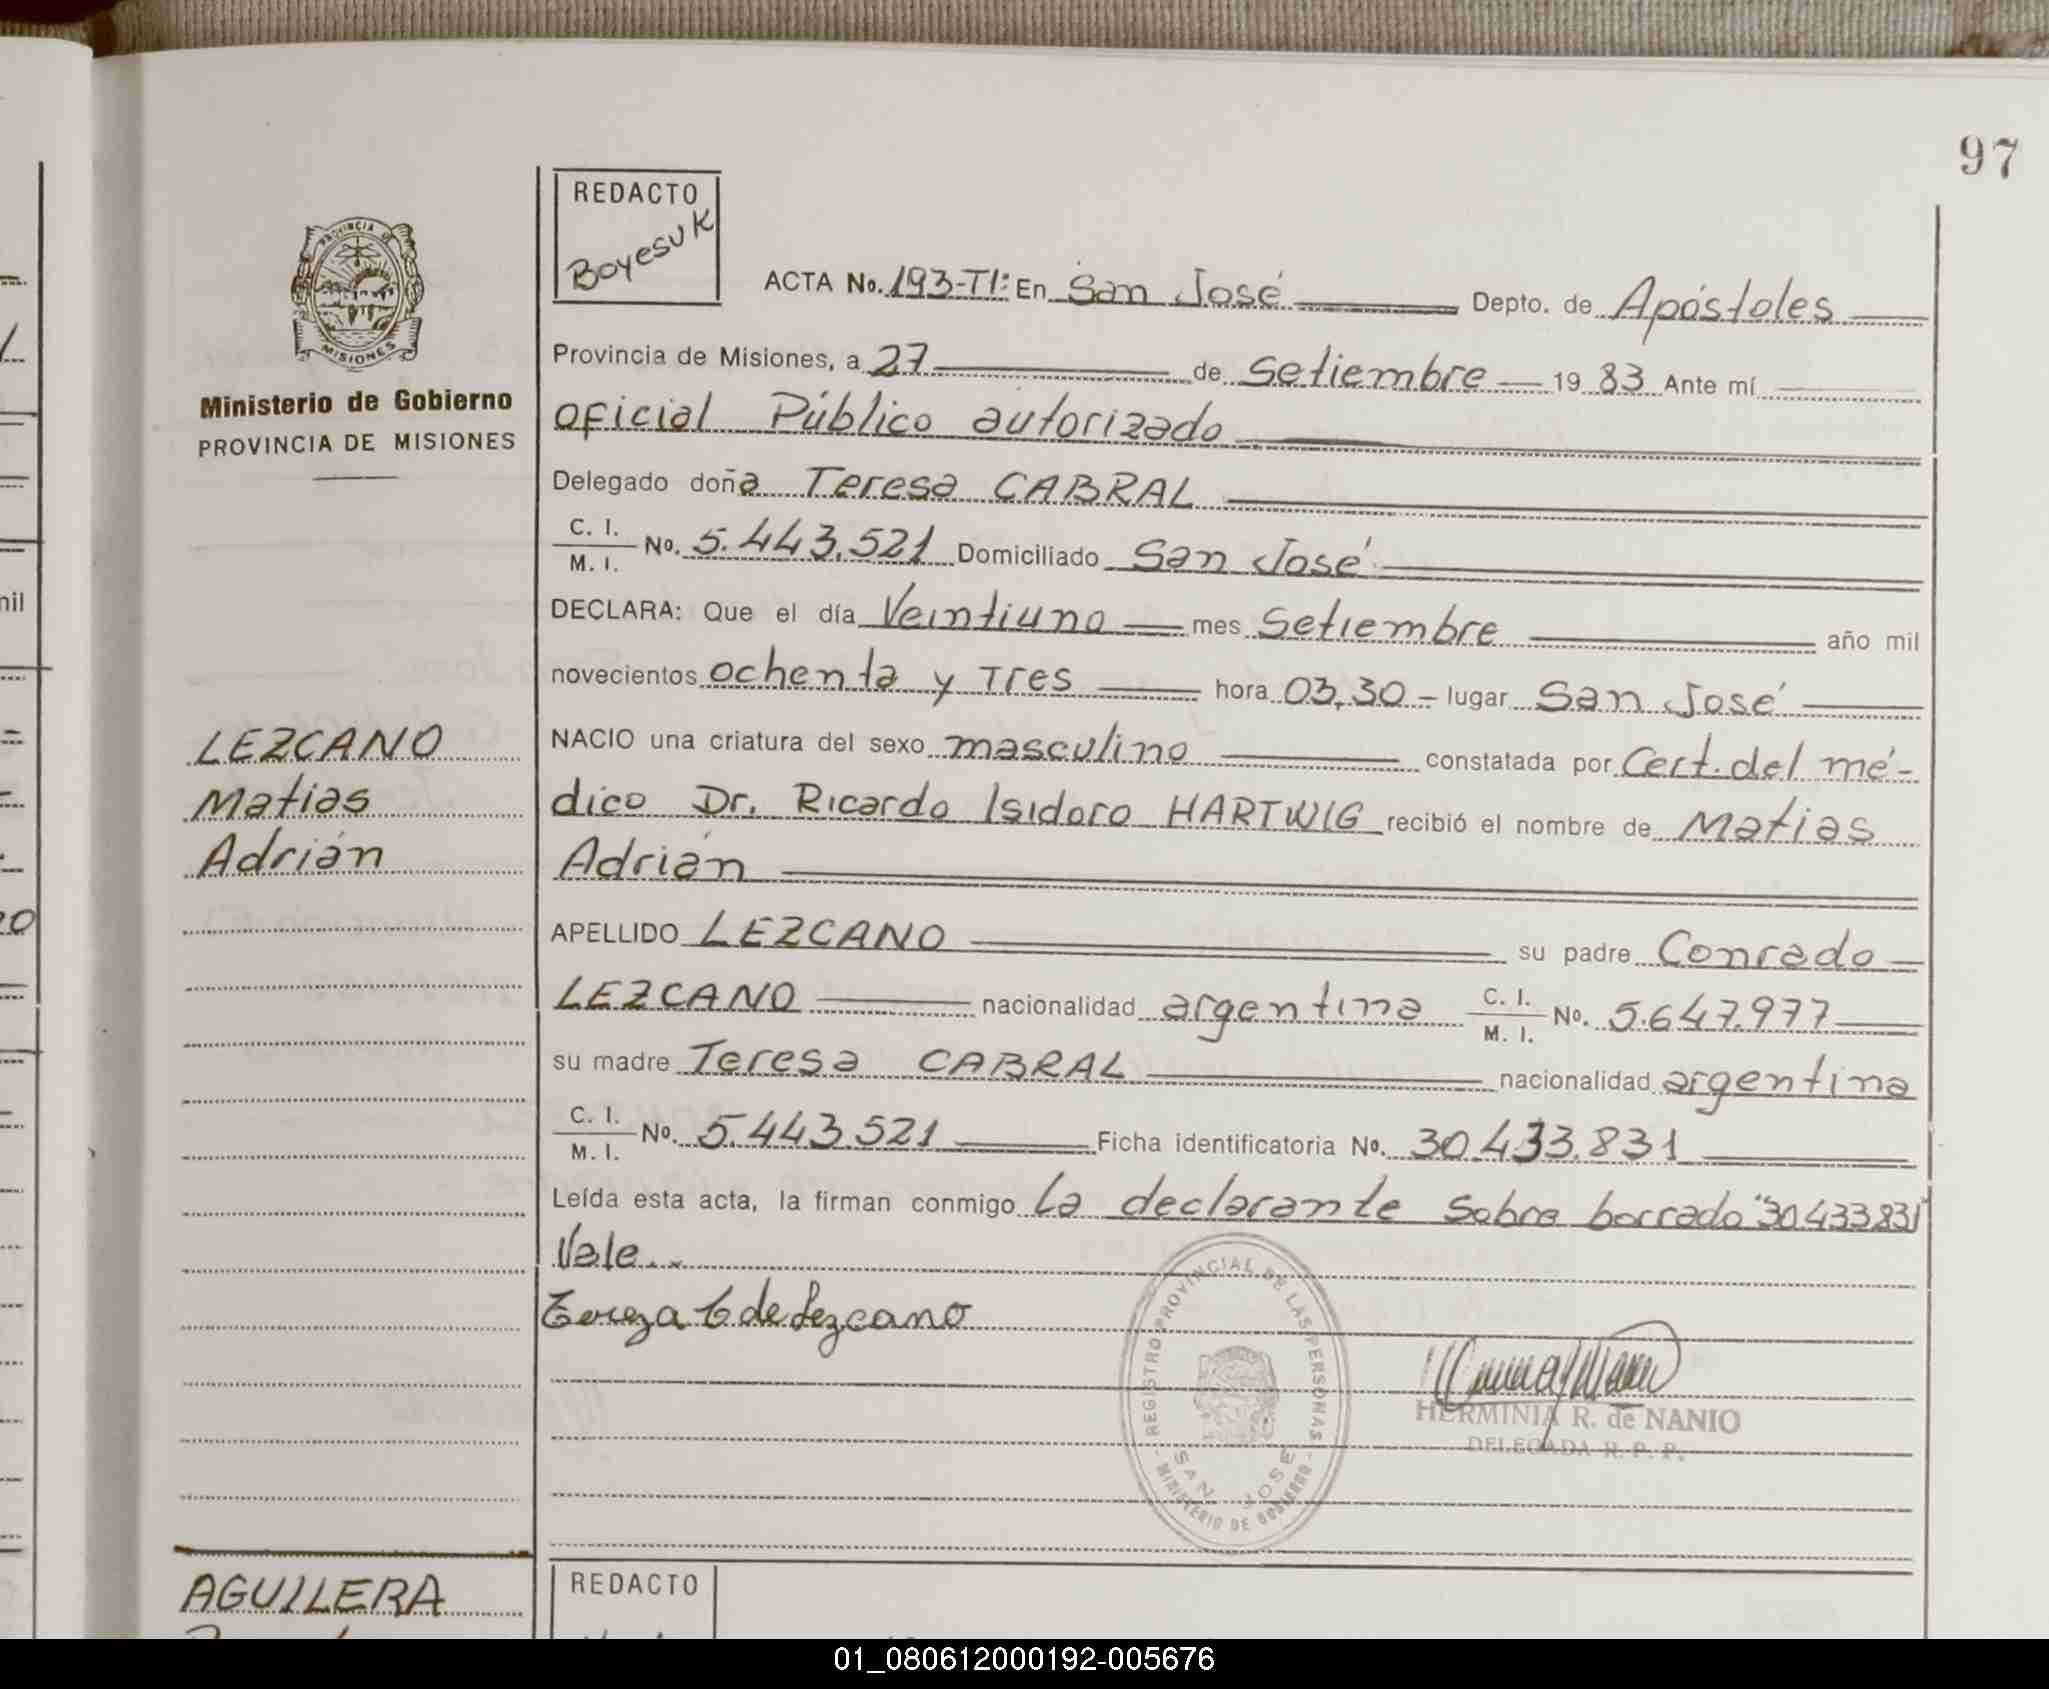 97
PROVINCIA DE
MISIONES
Ministerio de Gobierno
PROVINCIA DE MISIONES
LEZCANO
Matias
Adrián
REDACTO
Boyesuk
ACTA No. 193-TI: En San José Depto. de Apóstoles
Provincia de Misiones, a 27 de Setiembre 19 83 Ante mí
oficial Público autorizado
Delegado doña Teresa CABRAL
C. I.
M. I. No. 5.443.521 Domiciliado San José
DECLARA: Que el día Veintiuno mes Setiembre año mil
novecientos ochenta y Tres hora 03,30 - lugar San José
NACIO una criatura del sexo masculino constatada por Cert. del mé-
dico Dr. Ricardo Isidoro HARTWIG recibió el nombre de Matias
Adrián
APELLIDO LEZCANO su padre Conrado
LEZCANO nacionalidad argentina C. I. M. I. No. 5.647.977
su madre Teresa CABRAL nacionalidad argentina
C. I.
M. I. No. 5.443.521 Ficha identificatoria No. 30.433.831
Leída esta acta, la firman conmigo la declarante Sobre borrado "30.433.831"
Vale..
Tereza C de Lezcano
REGISTRO PROVINCIAL DE LAS PERSONAS
SAN JOSE
MINISTERIO DE GOBIERNO
HERMINIA R. de NANIO
DELEGADA R. P. P.
AGUILERA
REDACTO
01_080612000192-005676